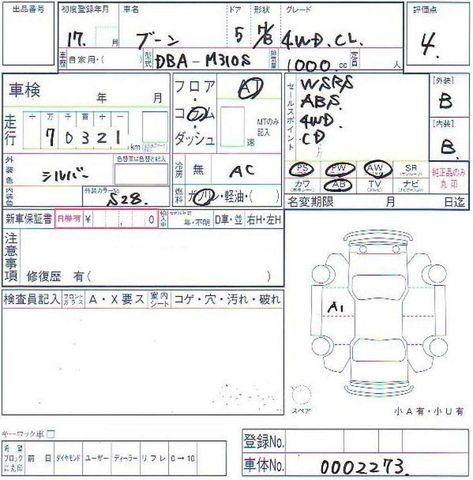 出品番号 初度登録年月 車名 ドア 形状 グレード 評価点
17. 月 ブーン 5 H/B 4WD. CL. 4.
車歴 自家用・( ) 型式 DBA-M310S 1000 cc 定員
車検 年 月
フロア・コラム・ダッシュ A MTのみ記入 速
セールスポイント WSRS
ABS
4WD
CD
[外装] B
[内装] B.
走行 十万千百十一
70321 km
外装色 シルバー 色替車は色替と記入
冷房 無 AC
内装色 外装カラーNo. S28.
燃料 ガソリン・軽油・( )
PS PW AW SR 純正品のみ丸印
カワ AB TV ナビ
名変期限 月 日迄
新車保証書 日機有 ¥ 0 輸入車 年・不明 D車・並 右H・左H
注意事項 修復歴 有( )
検査員記入 フロントガラス A・X要ス 室内シート コゲ・穴・汚れ・破れ
A1
スペア 小A有・小U有
キーロック車
希望ブロックに丸印 前日 ダイヤモンド ユーザー ディーラー リフレ 0→10
登録No.
車体No. 0002273.